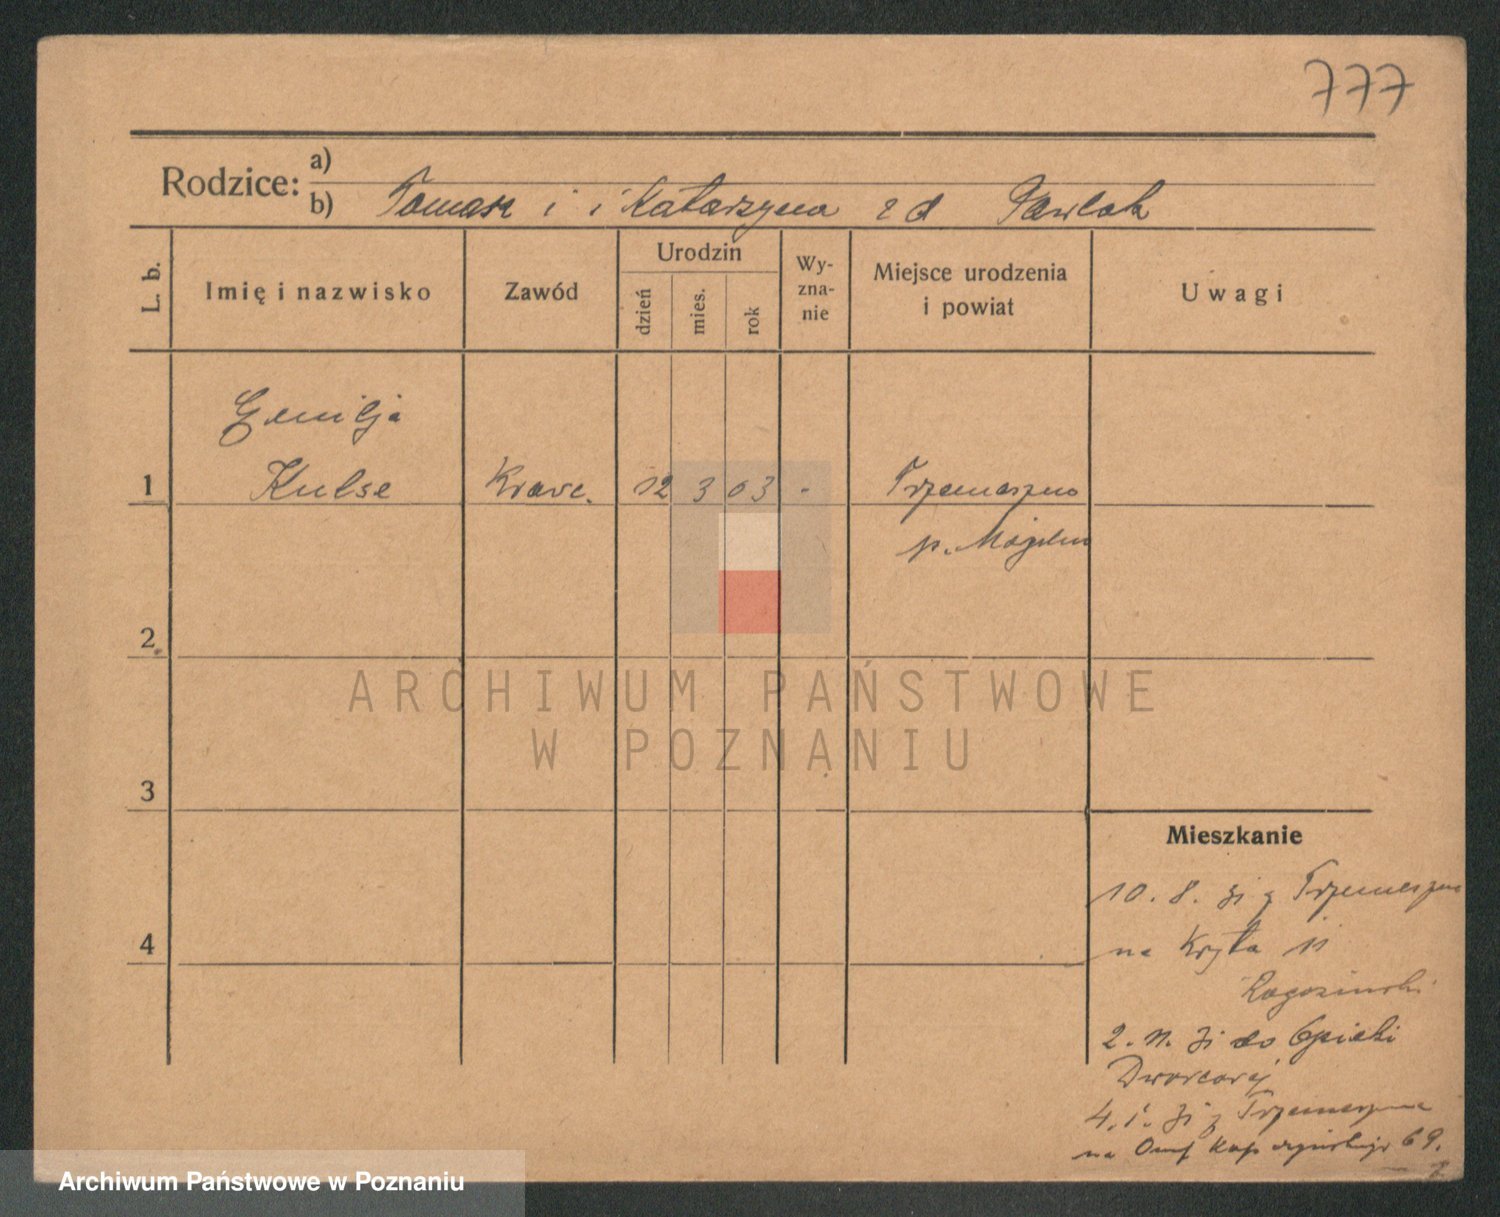 777
Rodzice: a)
b) Tomasz i i Katarzyna zd Pawlak
L. b.
Imię i nazwisko
Zawód
Urodzin
dzień
mies.
rok
Wy-
zna-
nie
Miejsce urodzenia
i powiat
Uwagi
Emilja
1 Kulse Krawc. 12 3 03 - Trzemeszno
p. Mogilno
2
ARCHIWUM PAŃSTWOWE
W POZNANIU
3
Mieszkanie
10. 8. 31 z Trzemeszna
4
na Kręta 11
Rogoziński
2. 11. 31 do Opieki
Dworcowej
4. 1. 31 z Trzemeszna
na 69.
Archiwum Państwowe w Poznaniu